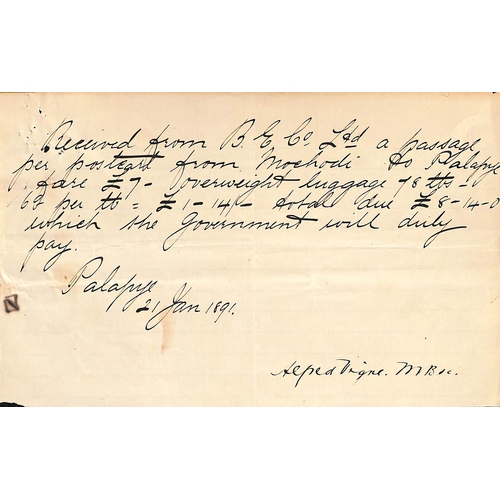 Received from B. E. Co Ltd a passage
per postcart from Mochodi to Palapye
fare £7- overweight luggage 78 lbs -
6d per lb = £1-14/- total due £8-14-0
which the Government will duly
pay.
Palapye
21 Jan 1891.
Alfred Vigne.